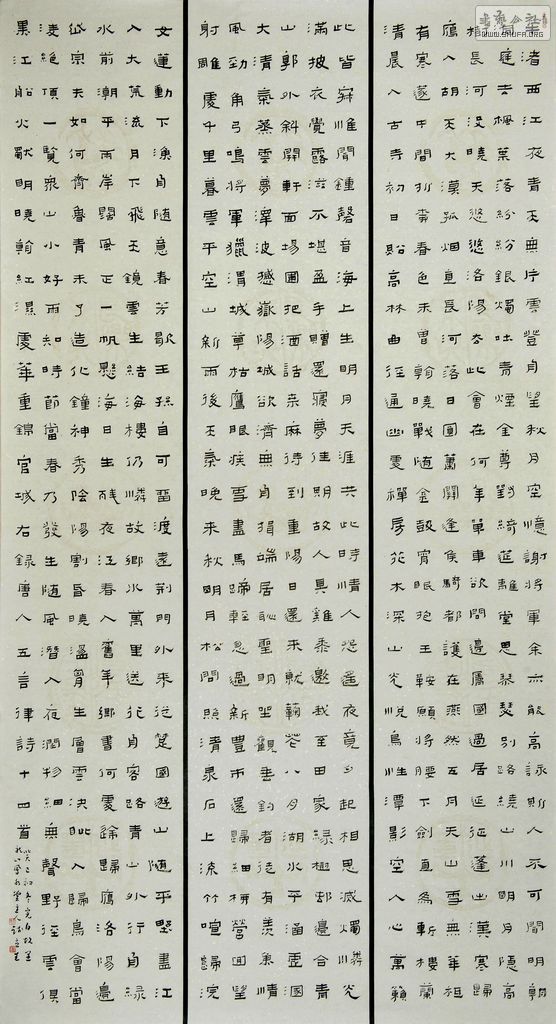 牛渚西江夜青天無片雲登舟望秋月空憶謝將軍余亦能高詠斯人不可聞明朝
挂席去楓葉落紛紛銀燭吐青煙金尊對綺筵離堂思琴瑟別路繞山川明月隱高
樹長河沒曉天悠悠洛陽去此會在何年單車欲問邊屬國過居延征蓬出漢塞歸
雁入胡天大漠孤烟直長河落日圓蕭關逢候騎都護在燕然五月天山雪無華祗
有寒笛中聞折柳春色未曾看曉戰隨金鼓宵眠抱玉鞍願將腰下劍直為斬樓蘭
清晨入古寺初日照高林曲徑通幽處禪房花木深山光悅鳥性潭影空人心萬籟
此皆寂惟聞鐘磬音海上生明月天涯共此時情人怨遙夜竟夕起相思滅燭憐光
滿披衣覺露滋不堪盈手贈還寢夢佳期故人具雞黍邀我至田家綠樹村邊合青
山郭外斜開軒面場圃把酒話桑麻待到重陽日還來就菊花八月湖水平涵虛混
太清氣蒸雲夢澤波撼嶽陽城欲濟無舟楫端居恥聖明坐觀垂釣者徒有羨魚情
風勁角弓鳴將軍獵渭城草枯鷹眼疾雪盡馬蹄輕忽過新豐市還歸細柳營回望
射雕處千里暮雲平空山新雨後天氣晚來秋明月松間照清泉石上流竹喧歸浣
女蓮動下漁舟隨意春芳歇王孫自可留渡遠荊門外來從楚國遊山隨平野盡江
入大荒流月下飛天鏡雲生結海樓仍憐故鄉水萬里送行舟客路青山外行舟綠
水前潮平兩岸闊風正一帆懸海日生殘夜江春入舊年鄉書何處達歸雁洛陽邊
岱宗夫如何齊魯青未了造化鍾神秀陰陽割昏曉盪胸生層雲決眥入歸鳥會當
凌絕頂一覽衆山小好雨知時節當春乃發生隨風潛入夜潤物細無聲野徑雲俱
黑江船火獨明曉看紅濕處華重錦官城右錄唐人五言律詩十四首